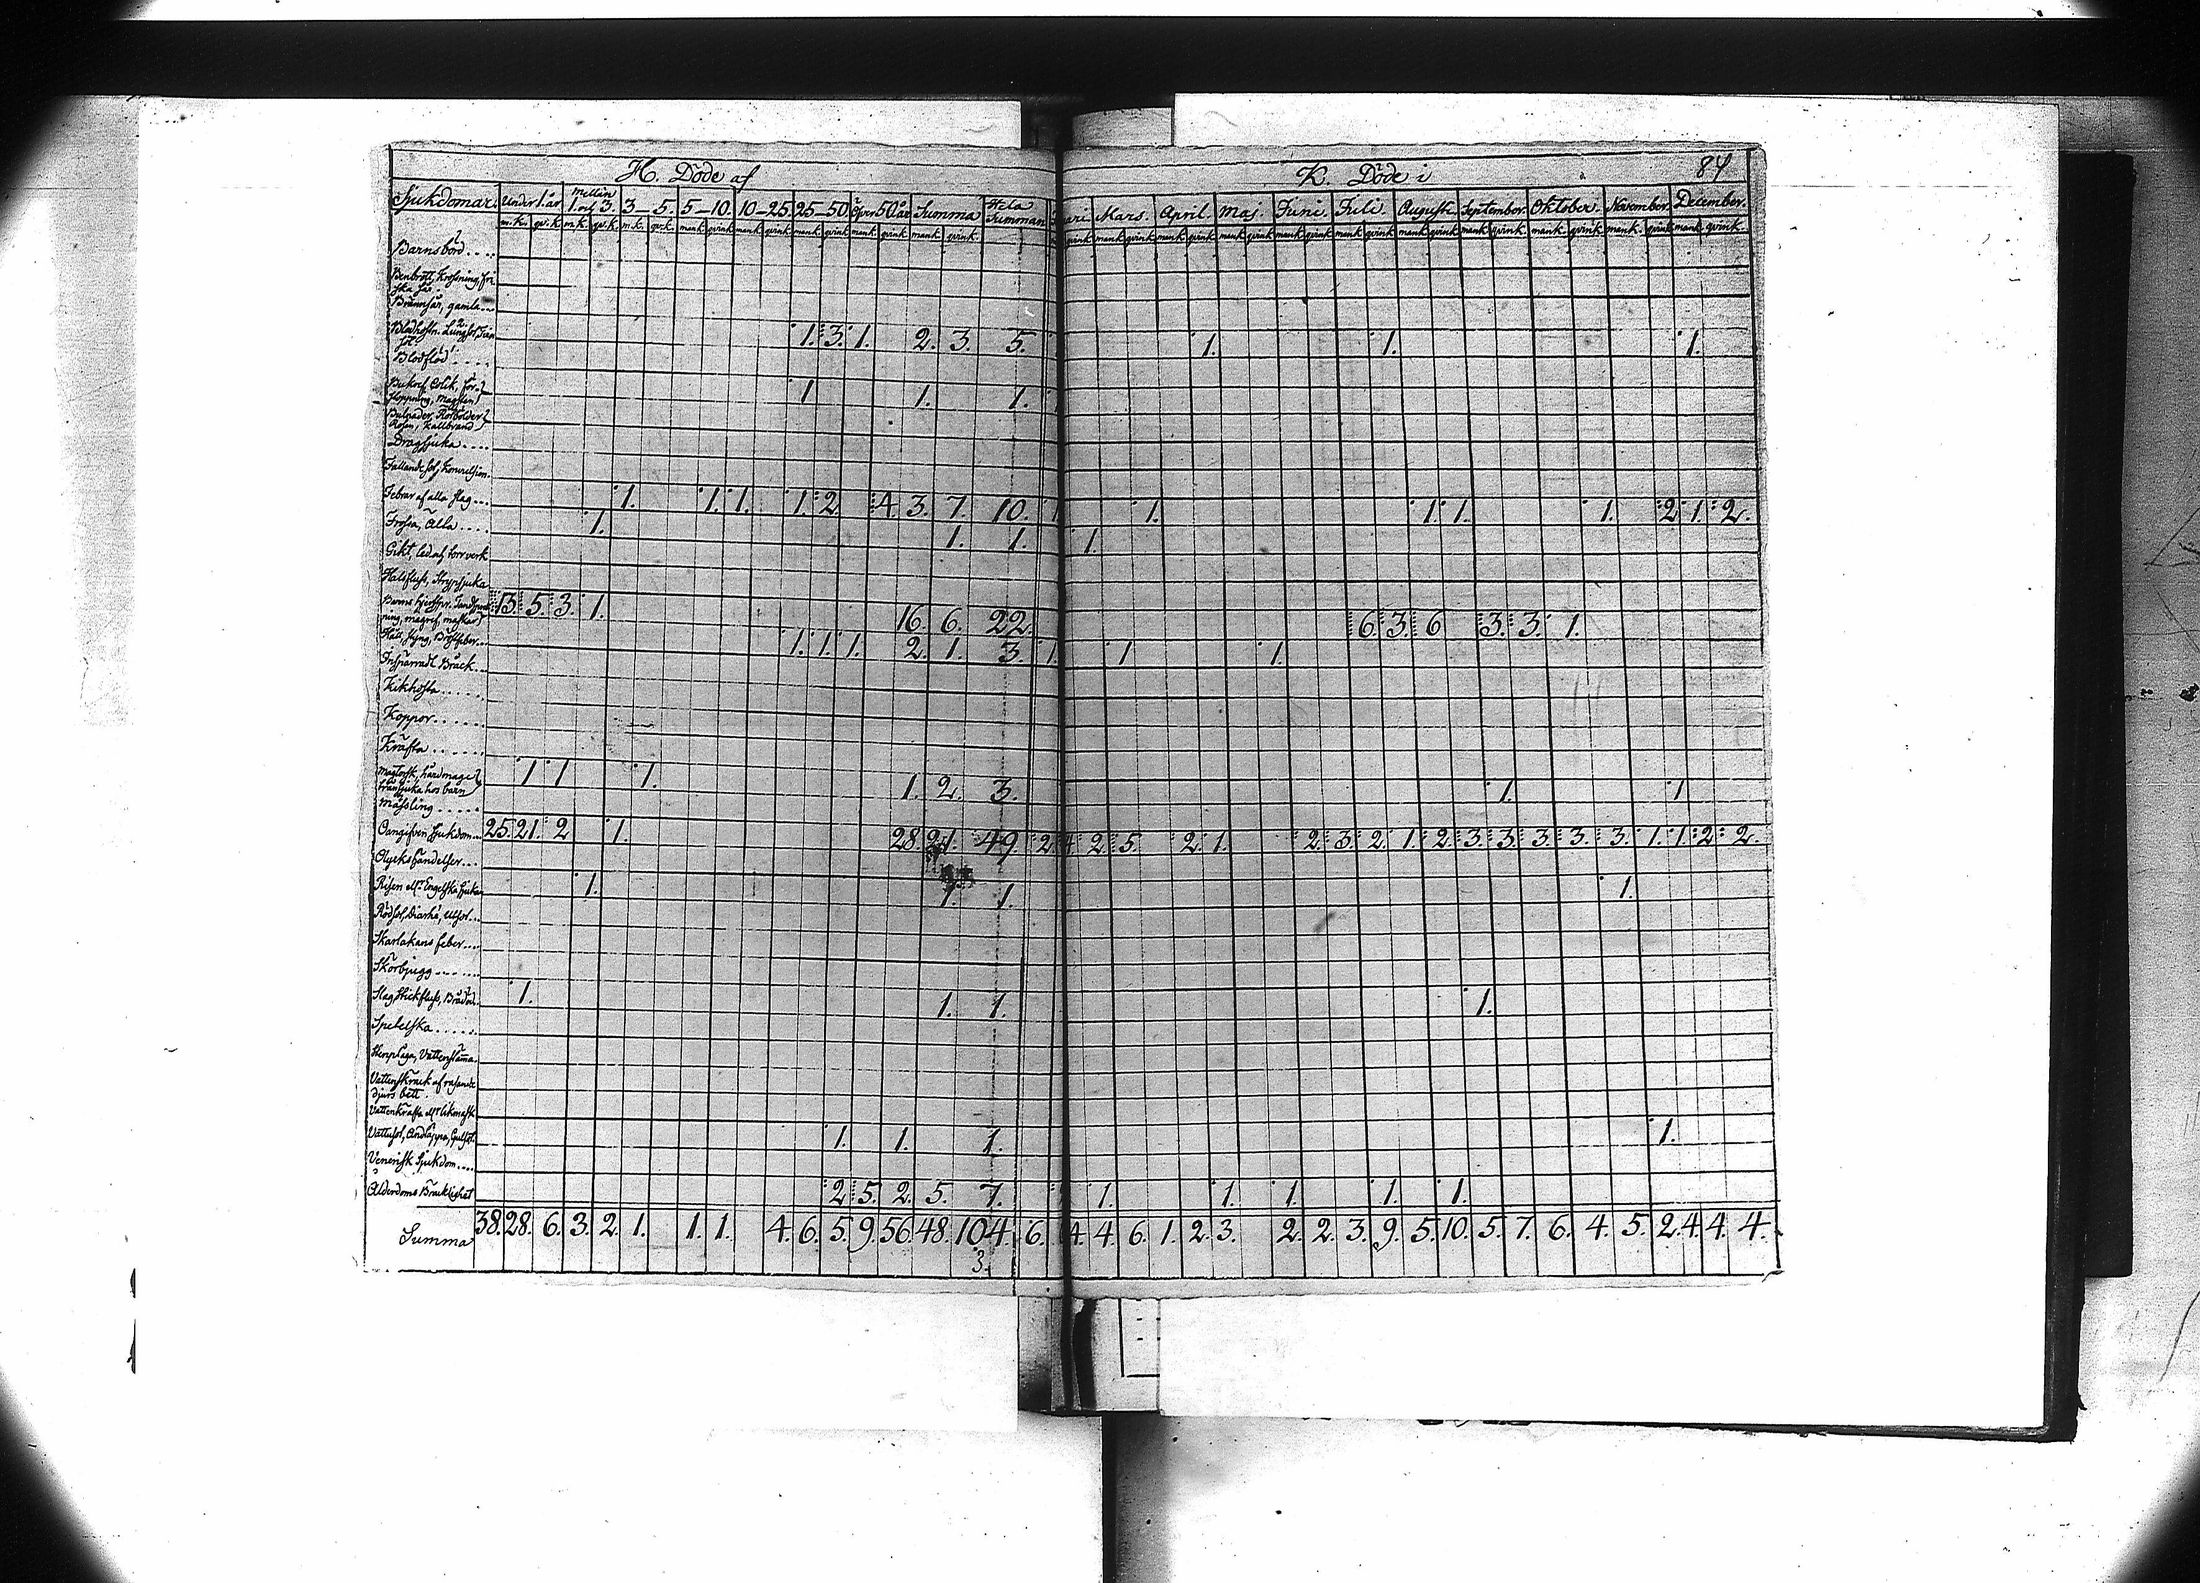 H. Döde af
K. Döde i 84
Sjukdomar. Under 1. år Mellan 1. och 3. 3 - 5. 5 - 10. 10 - 25 25 - 50 Öfver 50 år Summa Hela Summan ari Mars. April. Maj. Juni. Juli. Augusti. September. Oktober. November. December.
m.k. qv.k. m.k. qv.k. m.k. qv.k. mank. qvink. mank. qvink. mank. qvink. mank. qvink. mank. qvink. qvink mank. qvink. mank. qvink. mank. qvink. mank. qvink. mank. qvink. mank. qvink. mank. qvink. mank. qvink. mank. qvink. mank. qvink.
Barnsböd....
Brännsår, gamla...
Blodhostn. Lungsot, 1. 3. 1. 2. 3. 5. 1. 1. 1.
Blodflöd....
Bukref, Colik, 1 1. 1.
Bulnader, Rötbölder
Rosen, Kallbrand
Dragsjuka....
Fallandesot, Konvulsion
Febrar af alla slag... 1. 1. 1. 1. 2 4. 3. 7. 10. 1. 1. 1. 1. 1. 2 1. 2.
Frossa, Älta.... 1. 1. 1. 1.
Gikt, led och torrverk
Halsfluss, Strypsjuka
13. 5. 3. 1. 16. 6. 22. 6. 3. 6 3. 3. 1.
Håll, Styng, Bröstfeber... 1. 1. 1. 2. 1. 3. 1. 1 1.
Inspärradt Bråck...
Kikhosta.....
Koppor......
Kräfta......
Magtorsk, hårdmage 1 1 1. 1. 2. 3. 1. 1
tränsjuka hos barn
Mässling.....
Oangifven Sjukdom... 25. 21. 2 1. 28. 21. 49. 2 4 2. 5. 2. 1. 2. 3. 2. 1. 2. 3. 3. 3. 3. 3. 1. 1. 2. 2.
Olyckshändelser...
Risen eller Engelska Sjukan 1. 1. 1. 1.
Rödsot, Diarhé, Utsot...
Skarlakans feber....
Skörbjugg.......
Slag, Stickfluss, Bråddöd. 1. 1. 1. 1.
Spetelska.....
Stenplåga, Vattenstämma.
Vattuskräck af rasande
djurs bett.
Vattenkräfta eller likmask
Vattusot, Andtäppa, Gulsot. 1. 1. 1. 1.
Venerisk Sjukdom....
Ålderdoms Bräcklighet 2 5. 2. 5. 7. 1. 1. 1. 1. 1.
Summa 38. 28. 6. 3. 2. 1. 1. 1. 4. 6. 5. 9. 56. 48. 104. 6. 4. 4. 6. 1. 2. 3. 2. 2. 3. 9. 5. 10. 5. 7. 6. 4. 5. 2. 4. 4. 4.
3.